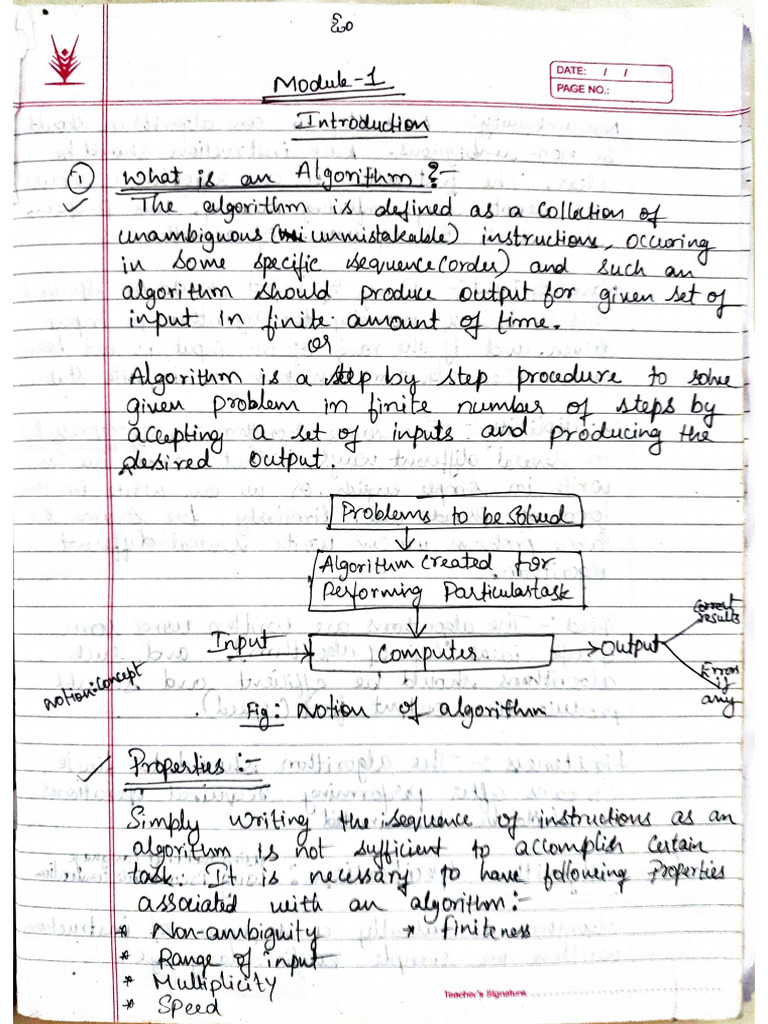 ಓಂ
Module-1
DATE: / /
PAGE NO.:
Introduction
① What is an Algorithm?:-
The algorithm is defined as a collection of
unambiguous (unmistakable) instructions, occuring
in some specific sequence (order) and such an
algorithm should produce output for given set of
input in finite amount of time.
or
Algorithm is a step by step procedure to solve
given problem in finite number of steps by
accepting a set of inputs and producing the
desired output.
Problems to be solved
Algorithm created for
Performing Particular task
Correct
results
Input
Computer
Output
Errors
if
any
notion:concept
Fig: Notion of algorithm
Properties :-
Simply writing the sequence of instructions as an
algorithm is not sufficient to accomplish certain
task. It is necessary to have following Properties
associated with an algorithm:-
* Non-ambiguity * finiteness
* Range of input
* Multiplicity
* Speed
Teacher's Signature